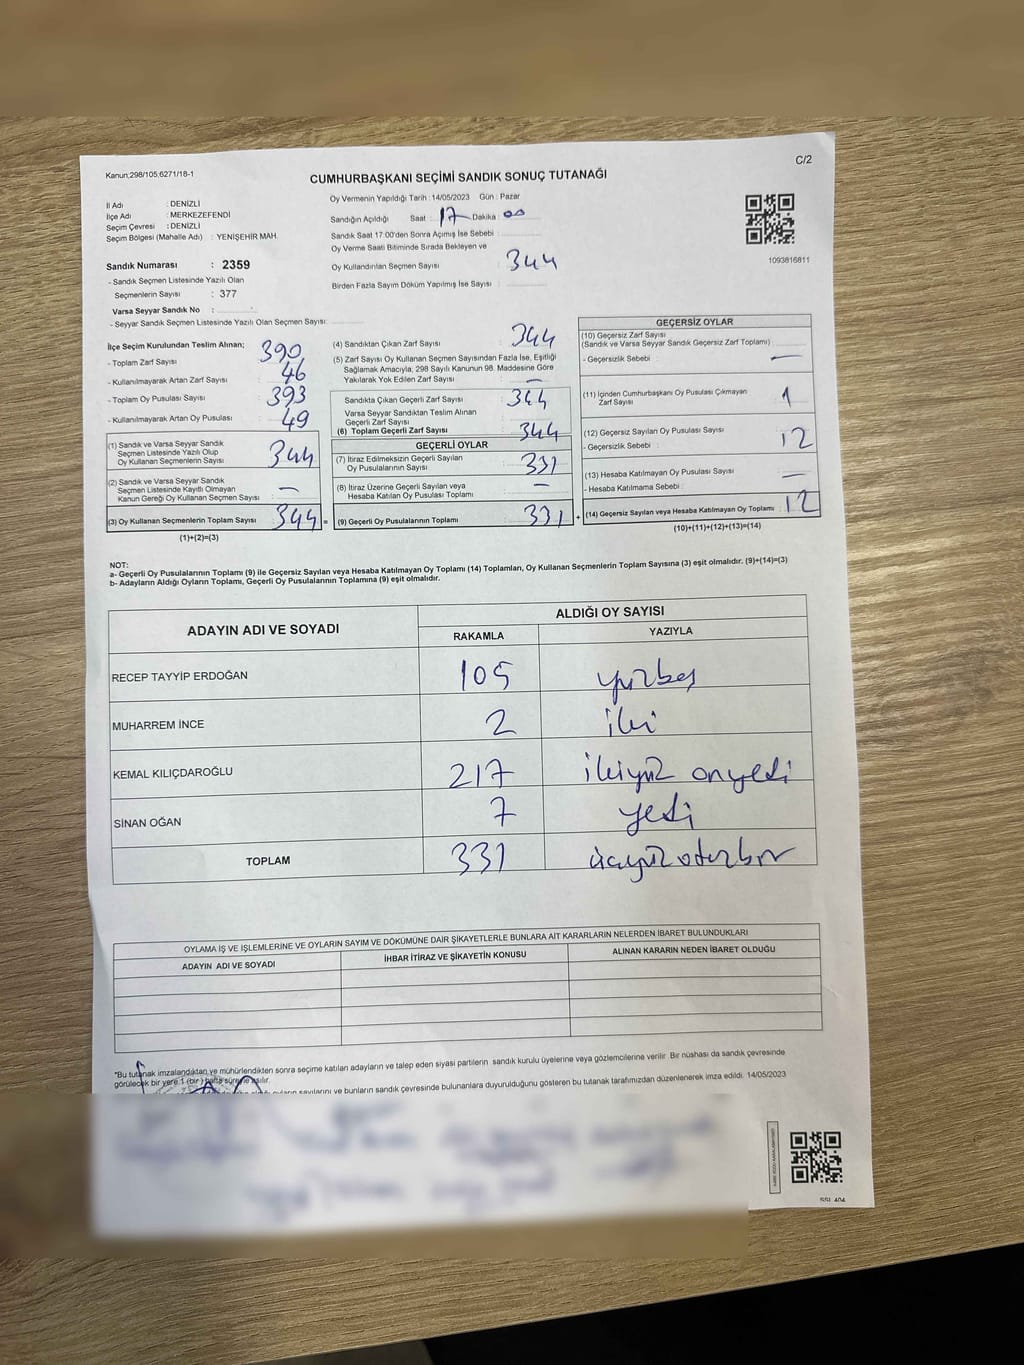 C/2
Kanun;298/105;6271/18-1
CUMHURBAŞKANI SEÇİMİ SANDIK SONUÇ TUTANAĞI
İl Adı : DENİZLİ
İlçe Adı : MERKEZEFENDİ
Seçim Çevresi : DENİZLİ
Seçim Bölgesi (Mahalle Adı) : YENİŞEHİR MAH.
Sandık Numarası : 2359
- Sandık Seçmen Listesinde Yazılı Olan
Seçmenlerin Sayısı : 377
Varsa Seyyar Sandık No :
- Seyyar Sandık Seçmen Listesinde Yazılı Olan Seçmen Sayısı:
Oy Vermenin Yapıldığı Tarih : 14/05/2023 Gün : Pazar
Sandığın Açıldığı Saat : 17 Dakika : 00
Sandık Saat 17.00'den Sonra Açılmış İse Sebebi :
Oy Verme Saati Bitiminde Sırada Bekleyen ve
Oy Kullandırılan Seçmen Sayısı : 344
Birden Fazla Sayım Döküm Yapılmış İse Sayısı :
1093816811
İlçe Seçim Kurulundan Teslim Alınan;
- Toplam Zarf Sayısı 390
- Kullanılmayarak Artan Zarf Sayısı 46
- Toplam Oy Pusulası Sayısı 393
- Kullanılmayarak Artan Oy Pusulası 49
(1) Sandık ve Varsa Seyyar Sandık
Seçmen Listesinde Yazılı Olup
Oy Kullanan Seçmenlerin Sayısı 344
(2) Sandık ve Varsa Seyyar Sandık
Seçmen Listesinde Kayıtlı Olmayan
Kanun Gereği Oy Kullanan Seçmen Sayısı : —
(3) Oy Kullanan Seçmenlerin Toplam Sayısı 344 =
(1)+(2)=(3)
(4) Sandıktan Çıkan Zarf Sayısı 344
(5) Zarf Sayısı Oy Kullanan Seçmen Sayısından Fazla İse, Eşitliği
Sağlamak Amacıyla, 298 Sayılı Kanunun 98. Maddesine Göre
Yakılarak Yok Edilen Zarf Sayısı : —
Sandıkta Çıkan Geçerli Zarf Sayısı : 344
Varsa Seyyar Sandıktan Teslim Alınan
Geçerli Zarf Sayısı
(6) Toplam Geçerli Zarf Sayısı 344
GEÇERLİ OYLAR
(7) İtiraz Edilmeksizin Geçerli Sayılan
Oy Pusulalarının Sayısı : 331
(8) İtiraz Üzerine Geçerli Sayılan veya
Hesaba Katılan Oy Pusulası Toplamı —
(9) Geçerli Oy Pusulalarının Toplamı 331 +
GEÇERSİZ OYLAR
(10) Geçersiz Zarf Sayısı
(Sandık ve Varsa Seyyar Sandık Geçersiz Zarf Toplamı)
- Geçersizlik Sebebi : —
(11) İçinden Cumhurbaşkanı Oy Pusulası Çıkmayan
Zarf Sayısı 1
(12) Geçersiz Sayılan Oy Pusulası Sayısı
- Geçersizlik Sebebi : 12
(13) Hesaba Katılmayan Oy Pusulası Sayısı
- Hesaba Katılmama Sebebi : —
(14) Geçersiz Sayılan veya Hesaba Katılmayan Oy Toplamı : 12
(10)+(11)+(12)+(13)=(14)
NOT:
a- Geçerli Oy Pusulalarının Toplamı (9) ile Geçersiz Sayılan veya Hesaba Katılmayan Oy Toplamı (14) Toplamları, Oy Kullanan Seçmenlerin Toplam Sayısına (3) eşit olmalıdır. (9)+(14)=(3)
b- Adayların Aldığı Oyların Toplamı, Geçerli Oy Pusulalarının Toplamına (9) eşit olmalıdır.
ADAYIN ADI VE SOYADI ALDIĞI OY SAYISI
RAKAMLA YAZIYLA
RECEP TAYYİP ERDOĞAN 105 yüzbeş
MUHARREM İNCE 2 iki
KEMAL KILIÇDAROĞLU 217 ikiyüz onyedi
SİNAN OĞAN 7 yedi
TOPLAM 331 üçyüzotuzbir
OYLAMA İŞ VE İŞLEMLERİNE VE OYLARIN SAYIM VE DÖKÜMÜNE DAİR ŞİKAYETLERLE BUNLARA AİT KARARLARIN NELERDEN İBARET BULUNDUKLARI
ADAYIN ADI VE SOYADI İHBAR İTİRAZ VE ŞİKAYETİN KONUSU ALINAN KARARIN NEDEN İBARET OLDUĞU
*Bu tutanak imzalandıktan ve mühürlendikten sonra seçime katılan adayların ve talep eden siyasi partilerin sandık kurulu üyelerine veya gözlemcilerine verilir. Bir nüshası da sandık çevresinde
görülecek bir yere 1 (bir) hafta süreyle asılır.
oyların sayılarını ve bunların sandık çevresinde bulunanlara duyurulduğunu gösteren bu tutanak tarafımızdan düzenlenerek imza edildi. 14/05/2023